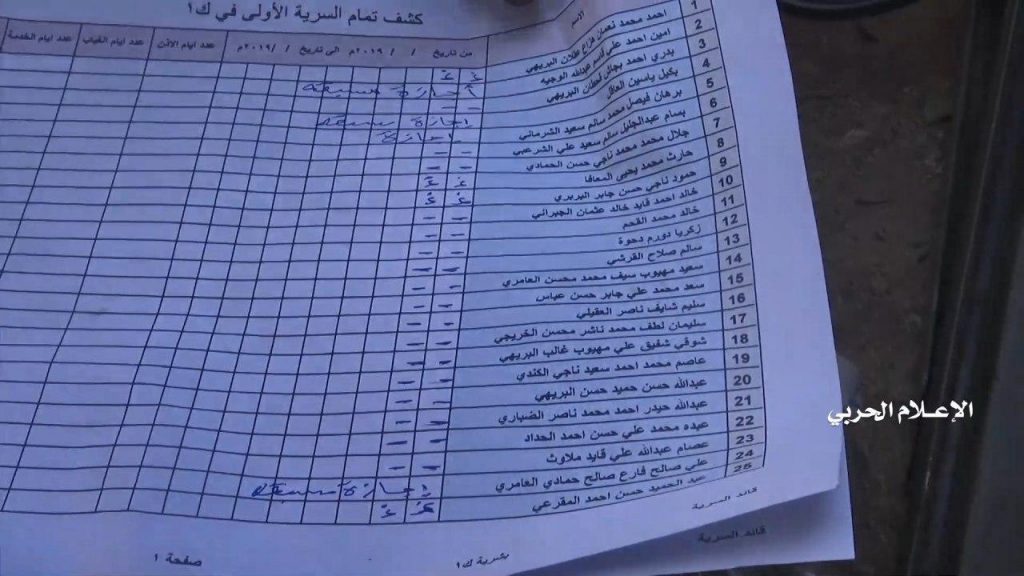 كشف تمام السرية الأولى في ك١
الاسم
من تاريخ / / ٢٠١٩م الى تاريخ / / ٢٠١٩م
عدد ايام الاذن
عدد ايام الغياب
عدد ايام الخدمة
1 احمد محمد نعمان فزاع عقلان البريهي
2 امين احمد علي قاسم عبدالله الوجيه غ غ
3 بدري احمد بجاش البريهي اجازة مسبقة
4 بكيل ياسين
5 برهان فيصل محمد سالم سعيد الشرماني
6 بسام عبدالجليل سالم سعيد علي الشرعبي
7 جلال محمد محمد ناجي حسن الحمادي
8 حارث محمد يحيى المعافا
9 حمود ناجي حسن جابر البريري
10 خالد احمد قايد خالد عثمان الجبراني
11 خالد محمد الفحم
12 زكريا دورم دحوة
13 سالم صلاح القرشي
14 سعيد مهيوب سيف محمد محسن العامري
15 سعد محمد علي جابر حسن عباس
16 سليم شايف ناصر العقيلي
17 سليمان لطف محمد ناشر محسن الخريجي
18 شوقي شفيق علي مهيوب غالب البريهي
19 عاصم محمد احمد سعيد ناجي الكندي
20 عبدالله حسن حميد حسن البريهي
21 عبدالله حيدر احمد محمد ناصر الضباري
22 عبده محمد علي حسن احمد الحداد
23 عصام عبدالله علي قايد ملاوث
24 علي صالح فارع صالح حمادي العامري اجازة مسبقة
25 عبد الحميد حسن احمد المقرعي غ غ
قائد السرية
قائد السرية
بشرية ك١
صفحة ١
الإعلام الحربي